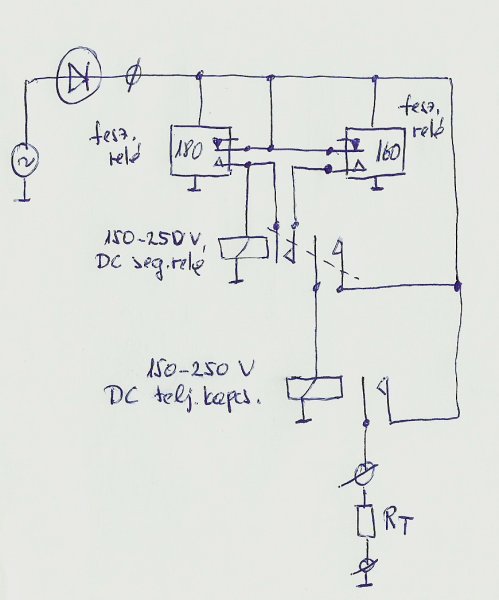 fesz.
relé
180
fesz.
relé
160
150-250V,
DC seg.relé
150-250 V
DC telj.kapcs.
RT